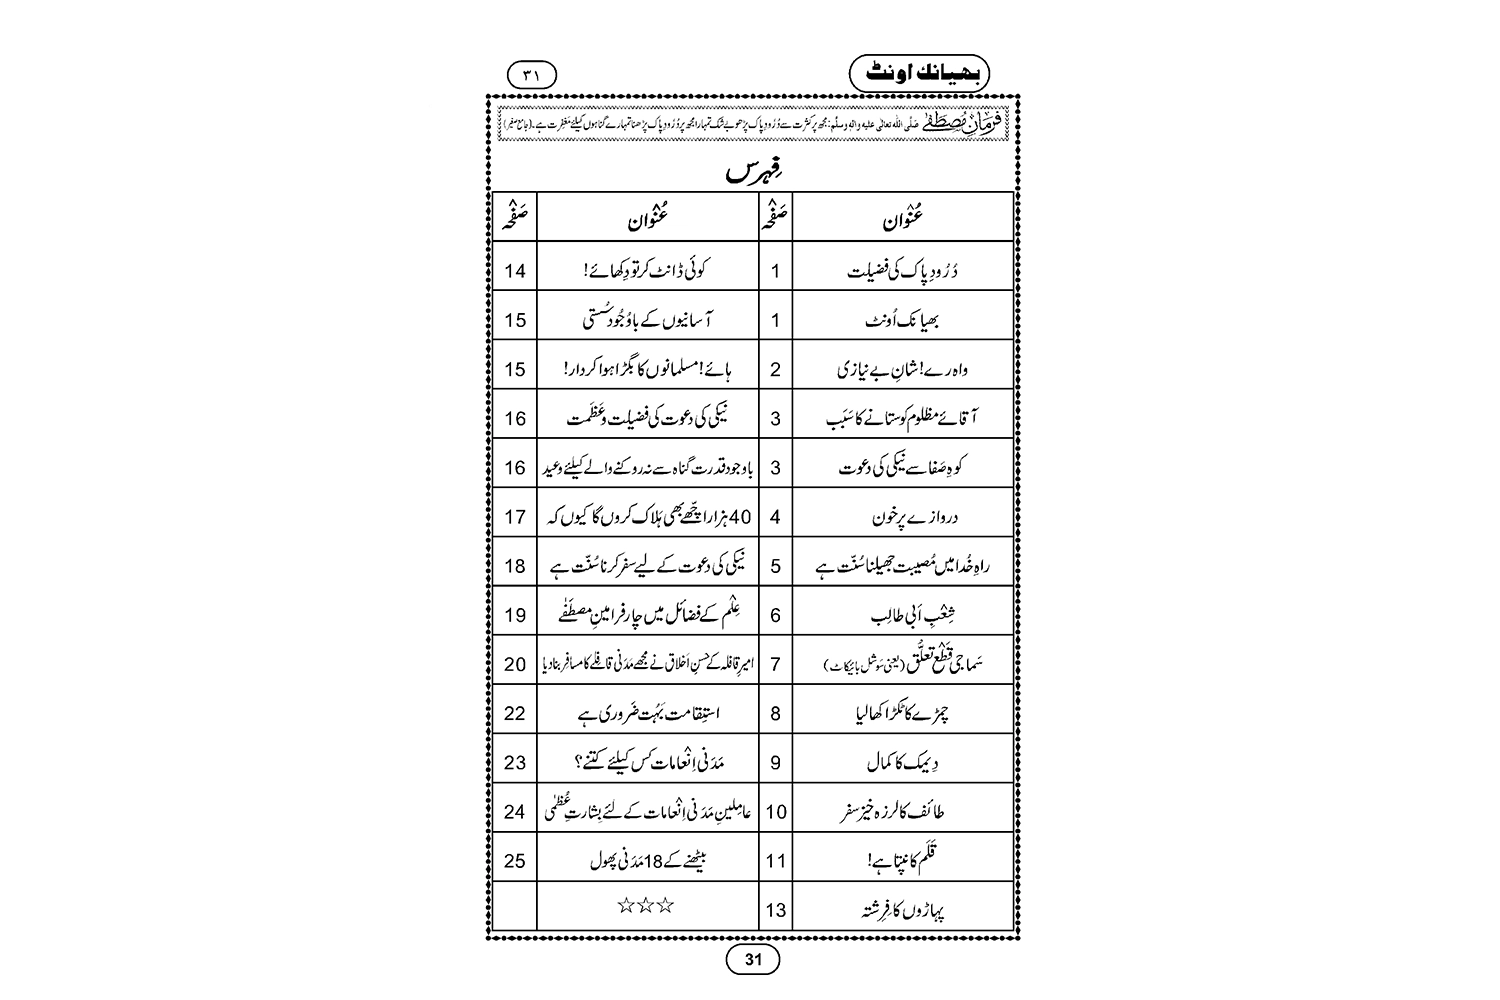 بھیانک اونٹ ۳۱
فرمانِ مصطَفٰے صلَّی اللہ تعالٰی علیہ واٰلہٖ وسلَّم: مجھ پر کثرت سے دُرُودِ پاک پڑھو بے شک تمہارا مجھ پر دُرُودِ پاک پڑھنا تمہارے گناہوں کیلئے مغفِرت ہے۔ (جامع صغیر)
فِہرس
عُنْوان صَفْحہ عُنْوان صَفْحہ
دُرُودِ پاک کی فضیلت 1 کوئی ڈانٹ کر تو دِکھائے! 14
بھیانک اُونٹ 1 آسانیوں کے باوُجُود سُستی 15
واہ رے! شانِ بے نیازی 2 ہائے! مسلمانوں کا بگڑا ہوا کردار! 15
آقائے مظلوم کو ستانے کا سَبَب 3 نیکی کی دعوت کی فضیلت و عَظَمت 16
کوہِ صَفا سے نیکی کی دعوت 3 باوجود قدرت گناہ سے نہ روکنے والے کیلئے وعید 16
دروازے پر خون 4 40 ہزار اچّھے بھی ہَلاک کروں گا کیوں کہ 17
راہِ خُدا میں مُصیبت جھیلنا سُنّت ہے 5 نیکی کی دعوت کے لیے سفر کرنا سُنّت ہے 18
شِعْبِ اَبی طالِب 6 عِلْم کے فضائل میں چار فرامینِ مصطَفٰے 19
سَماجی قَطْعِ تعلُّق (یعنی سَوشل بائیکاٹ) 7 امیرِ قافلہ کے حُسنِ اَخلاق نے مجھے مَدَنی قافِلے کا مسافِر بنا دیا 20
چمڑے کا ٹکڑا کھا لیا 8 استِقامت بَہُت ضَروری ہے 22
دِیمک کا کمال 9 مَدَنی اِنْعامات کس کیلئے کتنے؟ 23
طائف کا لرزہ خیز سفر 10 عامِلینِ مَدَنی اِنْعامات کے لئے بِشارتِ عُظْمٰی 24
قَلَم کانپتا ہے! 11 بیٹھنے کے 18 مَدَنی پھول 25
پہاڑوں کا فِرِشتہ 13 ☆☆☆
31